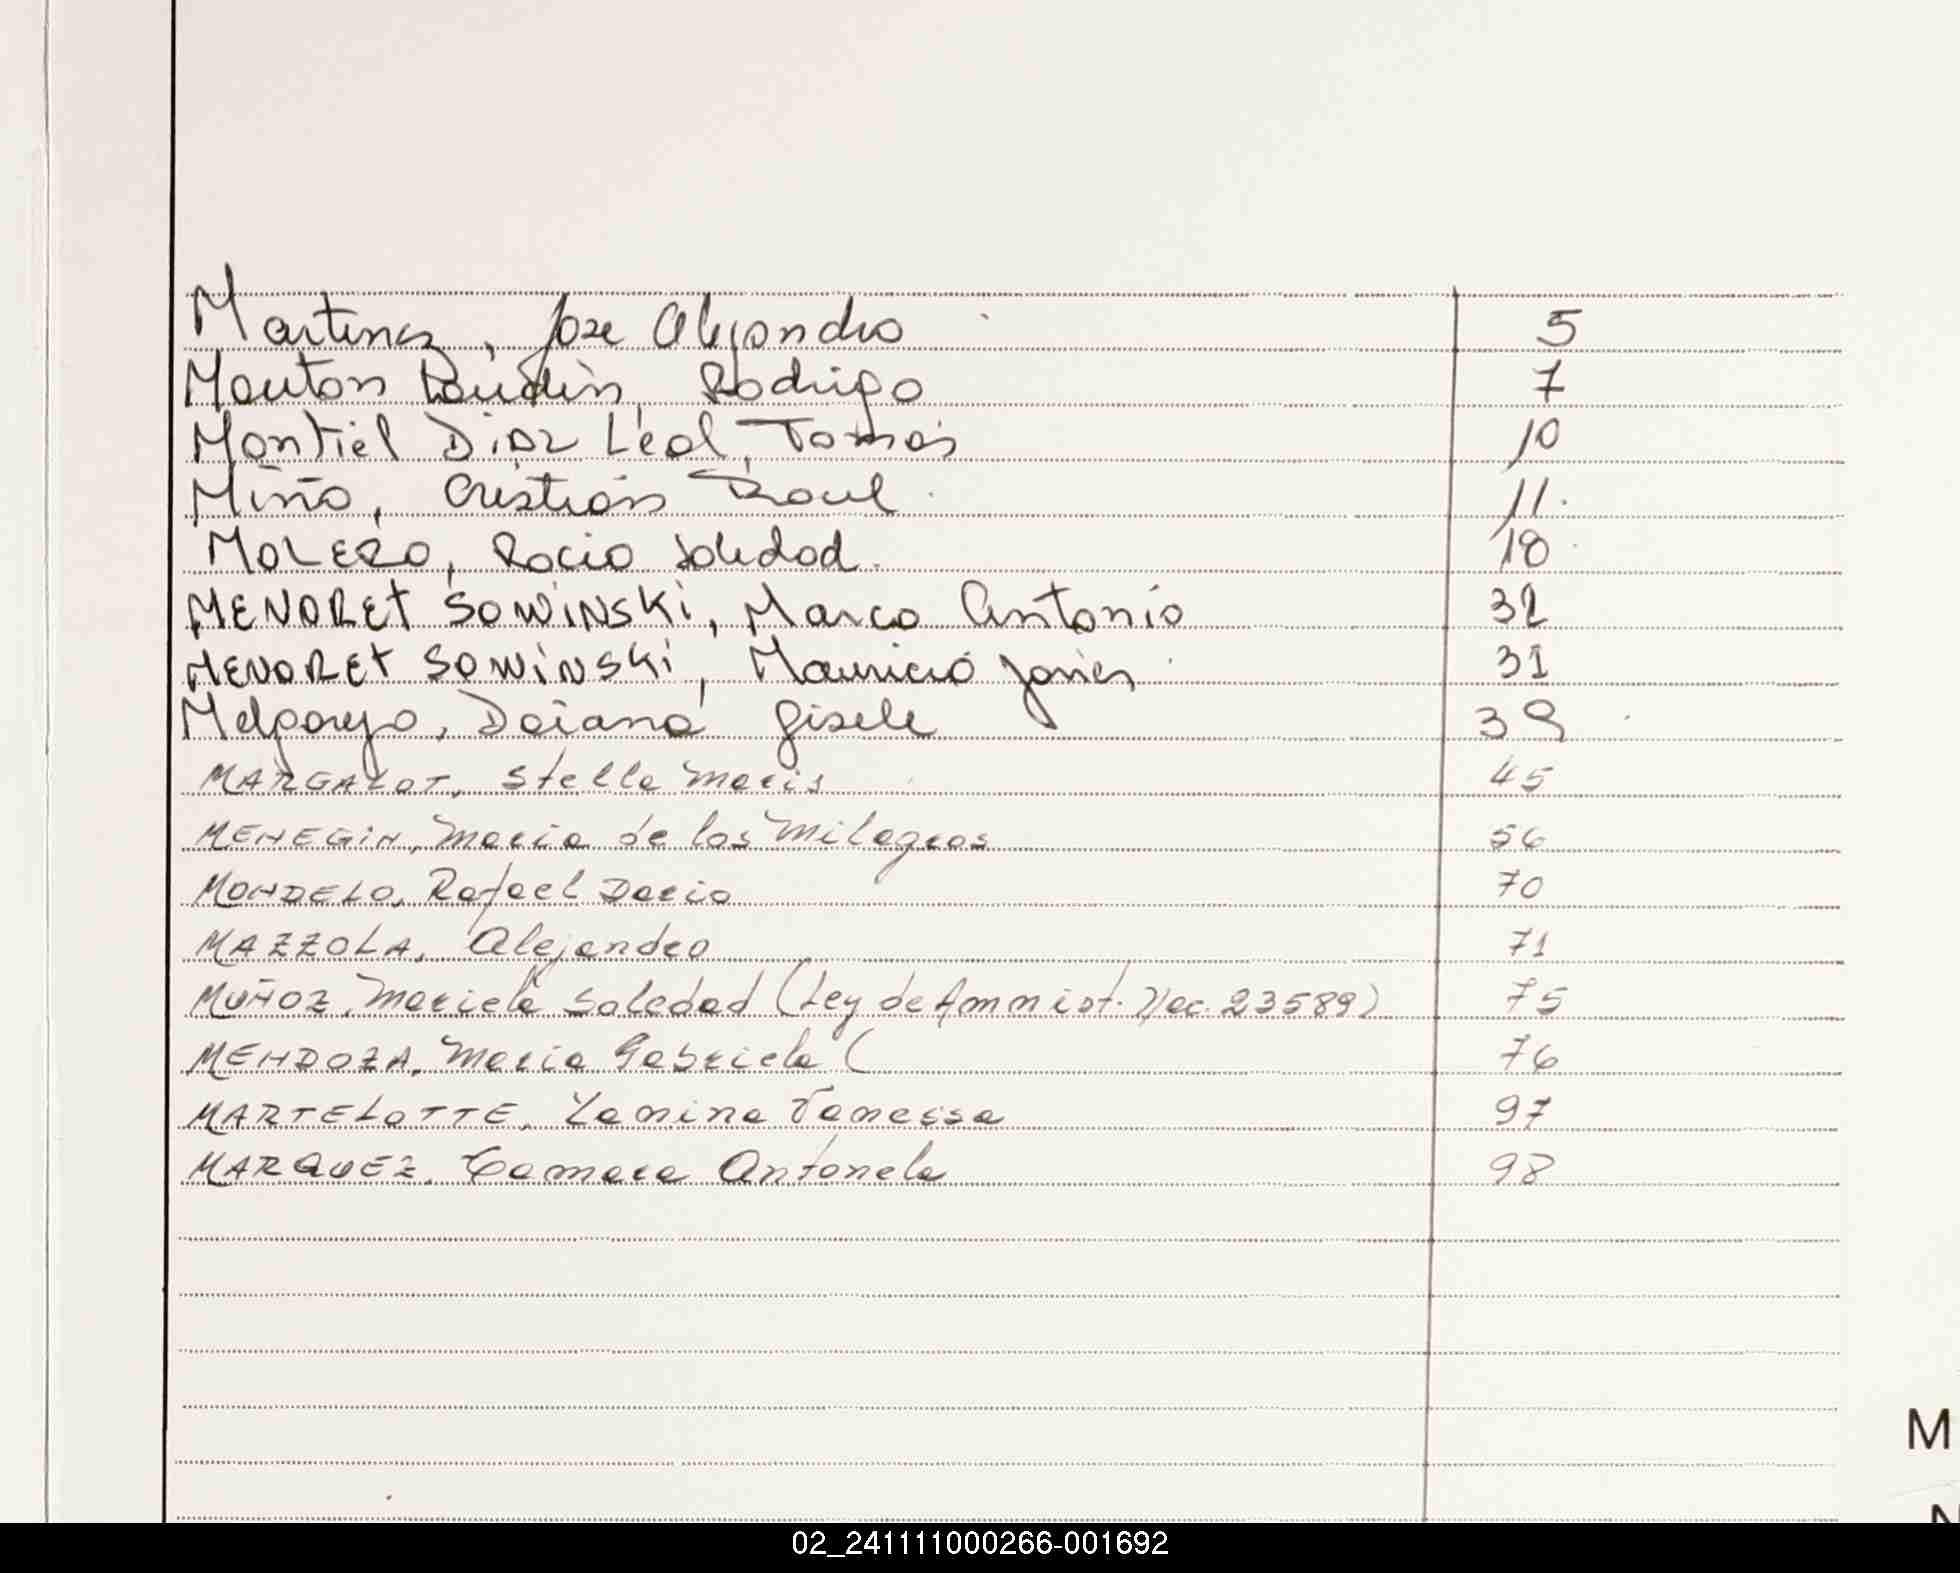 Martinez, Jose Alejandro 5
Mouton Roudin, Rodrigo 7
Montiel Diaz Leal, Tomás 10
Miño, Cristian Raul 11
MOLERO, Rocio Soledad 18
MENORET SOWINSKI, Marco Antonio 32
MENORET SOWINSKI, Mauricio Javier 31
Melgarejo, Daiana Gisele 39
MARGALOT, Stella Maris 45
MENEGIN, Maria de los Milagros 56
MONDELO, Rafael Dario 70
MAZZOLA, Alejandro 71
MUÑOZ, Mariela Soledad (Ley de Amnist. Nac. 23589) 75
MENDOZA, Maria Gabriela ( 76
MARTELOTTE, Yanina Vanessa 97
MARQUEZ, Camara Antonela 98
M
N
02_241111000266-001692